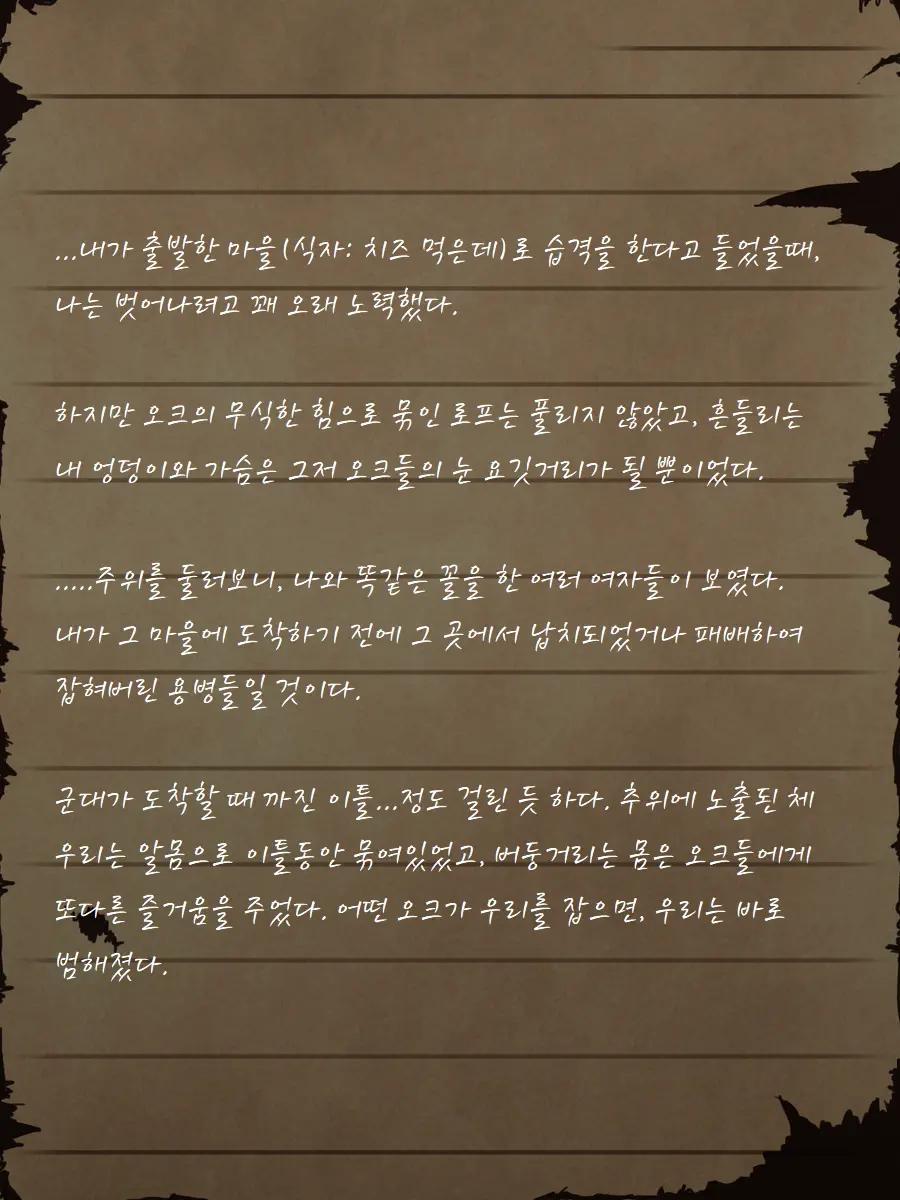 ...내가 출발한 마을(식자: 치즈 먹은데)로 습격을 한다고 들었을때,
나는 벗어나려고 꽤 오래 노력했다.
하지만 오크의 무식한 힘으로 묶인 로프는 풀리지 않았고, 흔들리는
내 엉덩이와 가슴은 그저 오크들의 눈 요깃거리가 될 뿐이었다.
.....주위를 둘러보니, 나와 똑같은 꼴을 한 여러 여자들이 보였다.
내가 그 마을에 도착하기 전에 그 곳에서 납치되었거나 패배하여
잡혀버린 용병들일 것이다.
군대가 도착할 때 까진 이틀...정도 걸린 듯 하다. 추위에 노출된 체
우리는 알몸으로 이틀동안 묶여있었고, 버둥거리는 몸은 오크들에게
또다른 즐거움을 주었다. 어떤 오크가 우리를 잡으면, 우리는 바로
범해졌다.